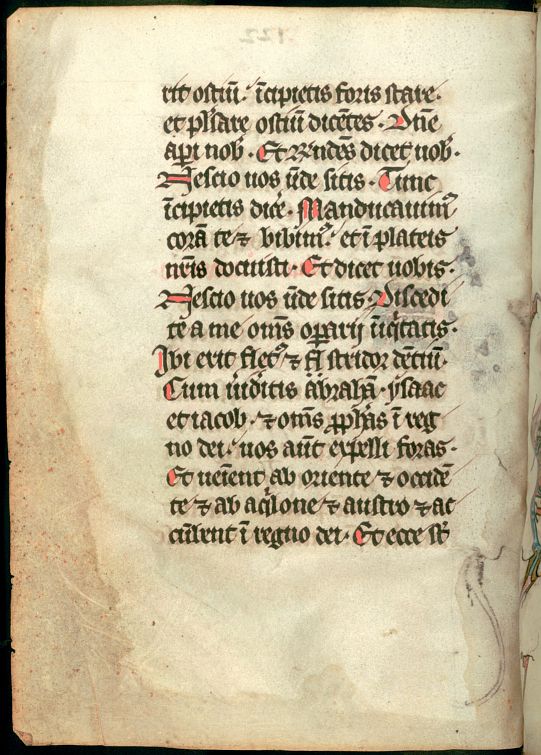 rit ostiū. īcipietis foris stare.
et pulsare ostiū dicētes. Dn̄e
aperi nob̄. Et Rn̄dēs dicet uob̄.
Nescio uos ūde sitis. Tunc
īcipietis dicē. Manducauimꝰ
corā te ⁊ bibimꝰ. et ī plateis
nr̄is docuisti. Et dicet uobis.
Nescio uos ūde sitis. Discedi
te a me om̄s oꝑarij īiq̇tatis.
Ibi erit fletꝰ ⁊ stridor dētiū.
Cum uiditis abrahā. ysaac
et iacob. ⁊ om̄s ꝓph̄as ī reg
no dei. uos aūt expelli foras.
Et ueīent ab oriente ⁊ occidē
te ⁊ ab aq̇lone ⁊ austro ⁊ ac
cūbent ī regno dei. Et ecce st̄